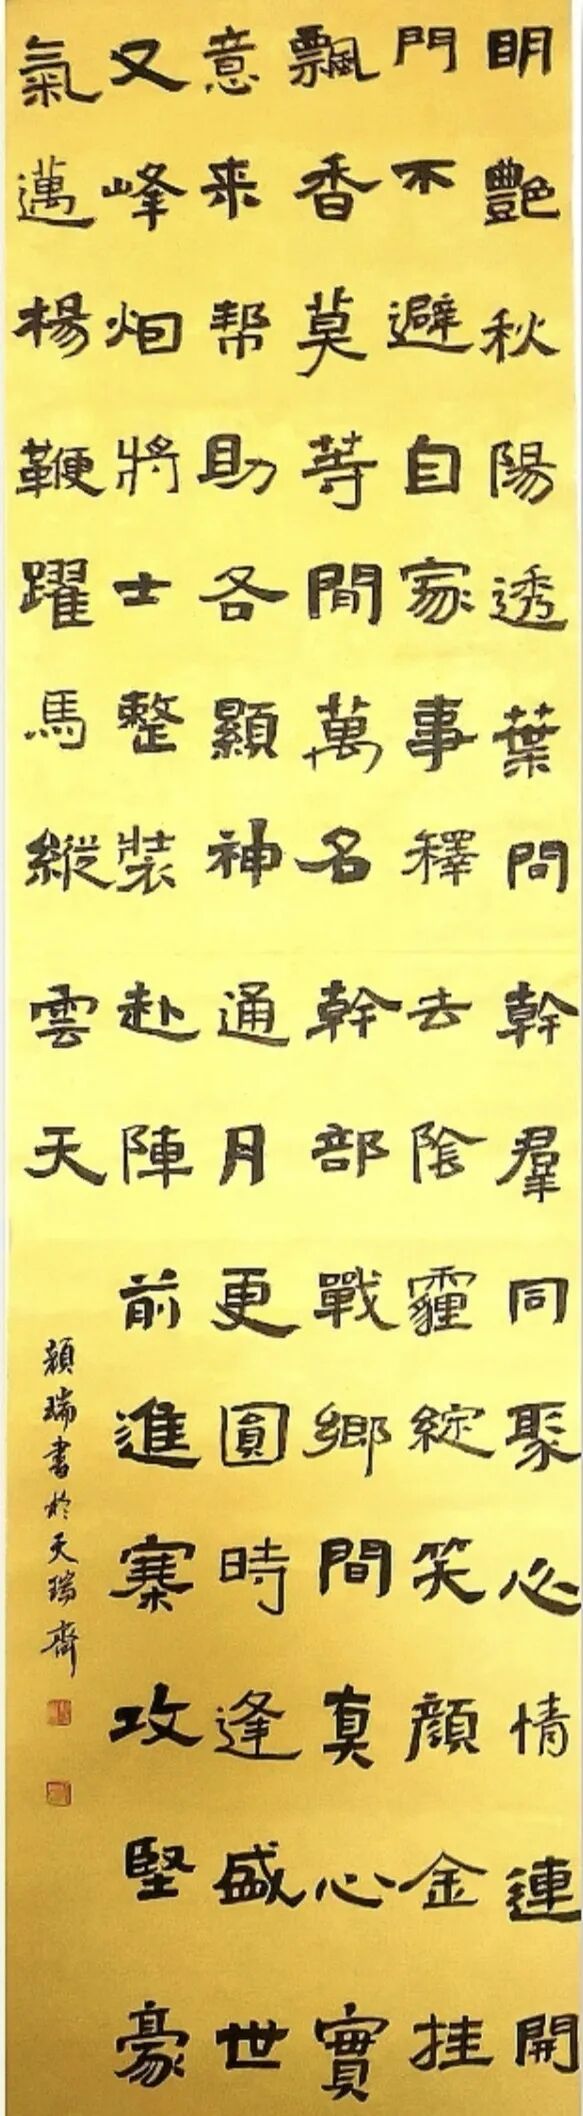 明艷秋陽透葉問幹羣同聚心情連開
門不避自家事釋去陰霾綻笑顔金挂
飄香莫等閒萬名幹部戰鄉間真心實
意来帮助各顯神通月更圓時逢盛世
又峰烟將士整裝赴陣前進寨攻堅豪
氣邁楊鞭躍馬縱雲天
顔瑞書於天瑞齋